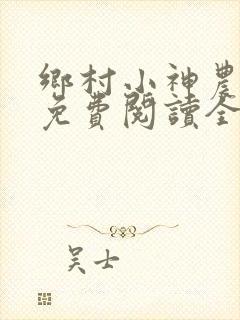 鄉村小神農
免費閱讀全
吳士